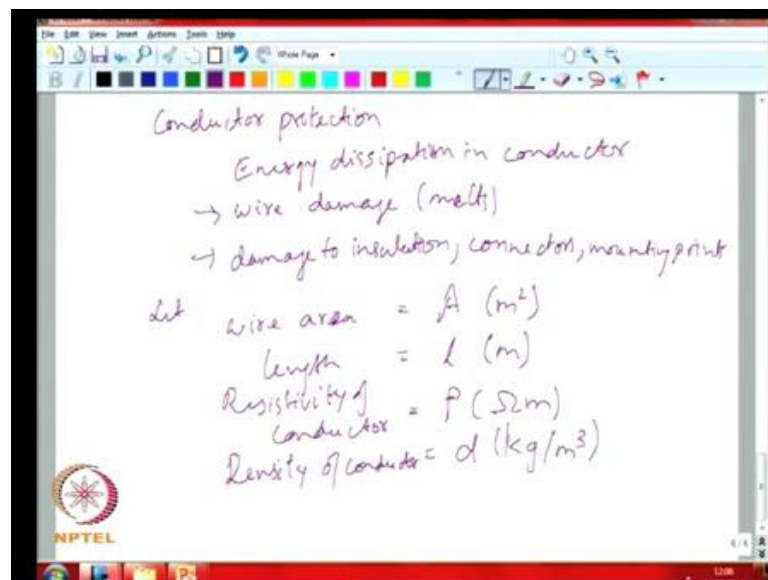 File Edit View Insert Actions Tools Help
Whole Page
B I
Conductor protection
Energy dissipation in conductor
→ wire damage (melts)
→ damage to insulation, connectors, mounting point
Let wire area = A (m²)
length = l (m)
Resistivity of
conductor = ρ (Ωm)
Density of conductor = d (kg/m³)
NPTEL
6/6
12:06